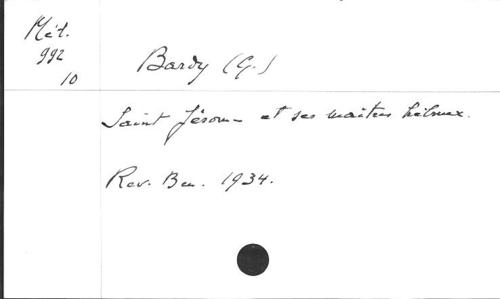 Mél.
992
10
Bardy (G.)
Saint Jérome et ses maîtres hébreux.
Rev. Ben. 1934.